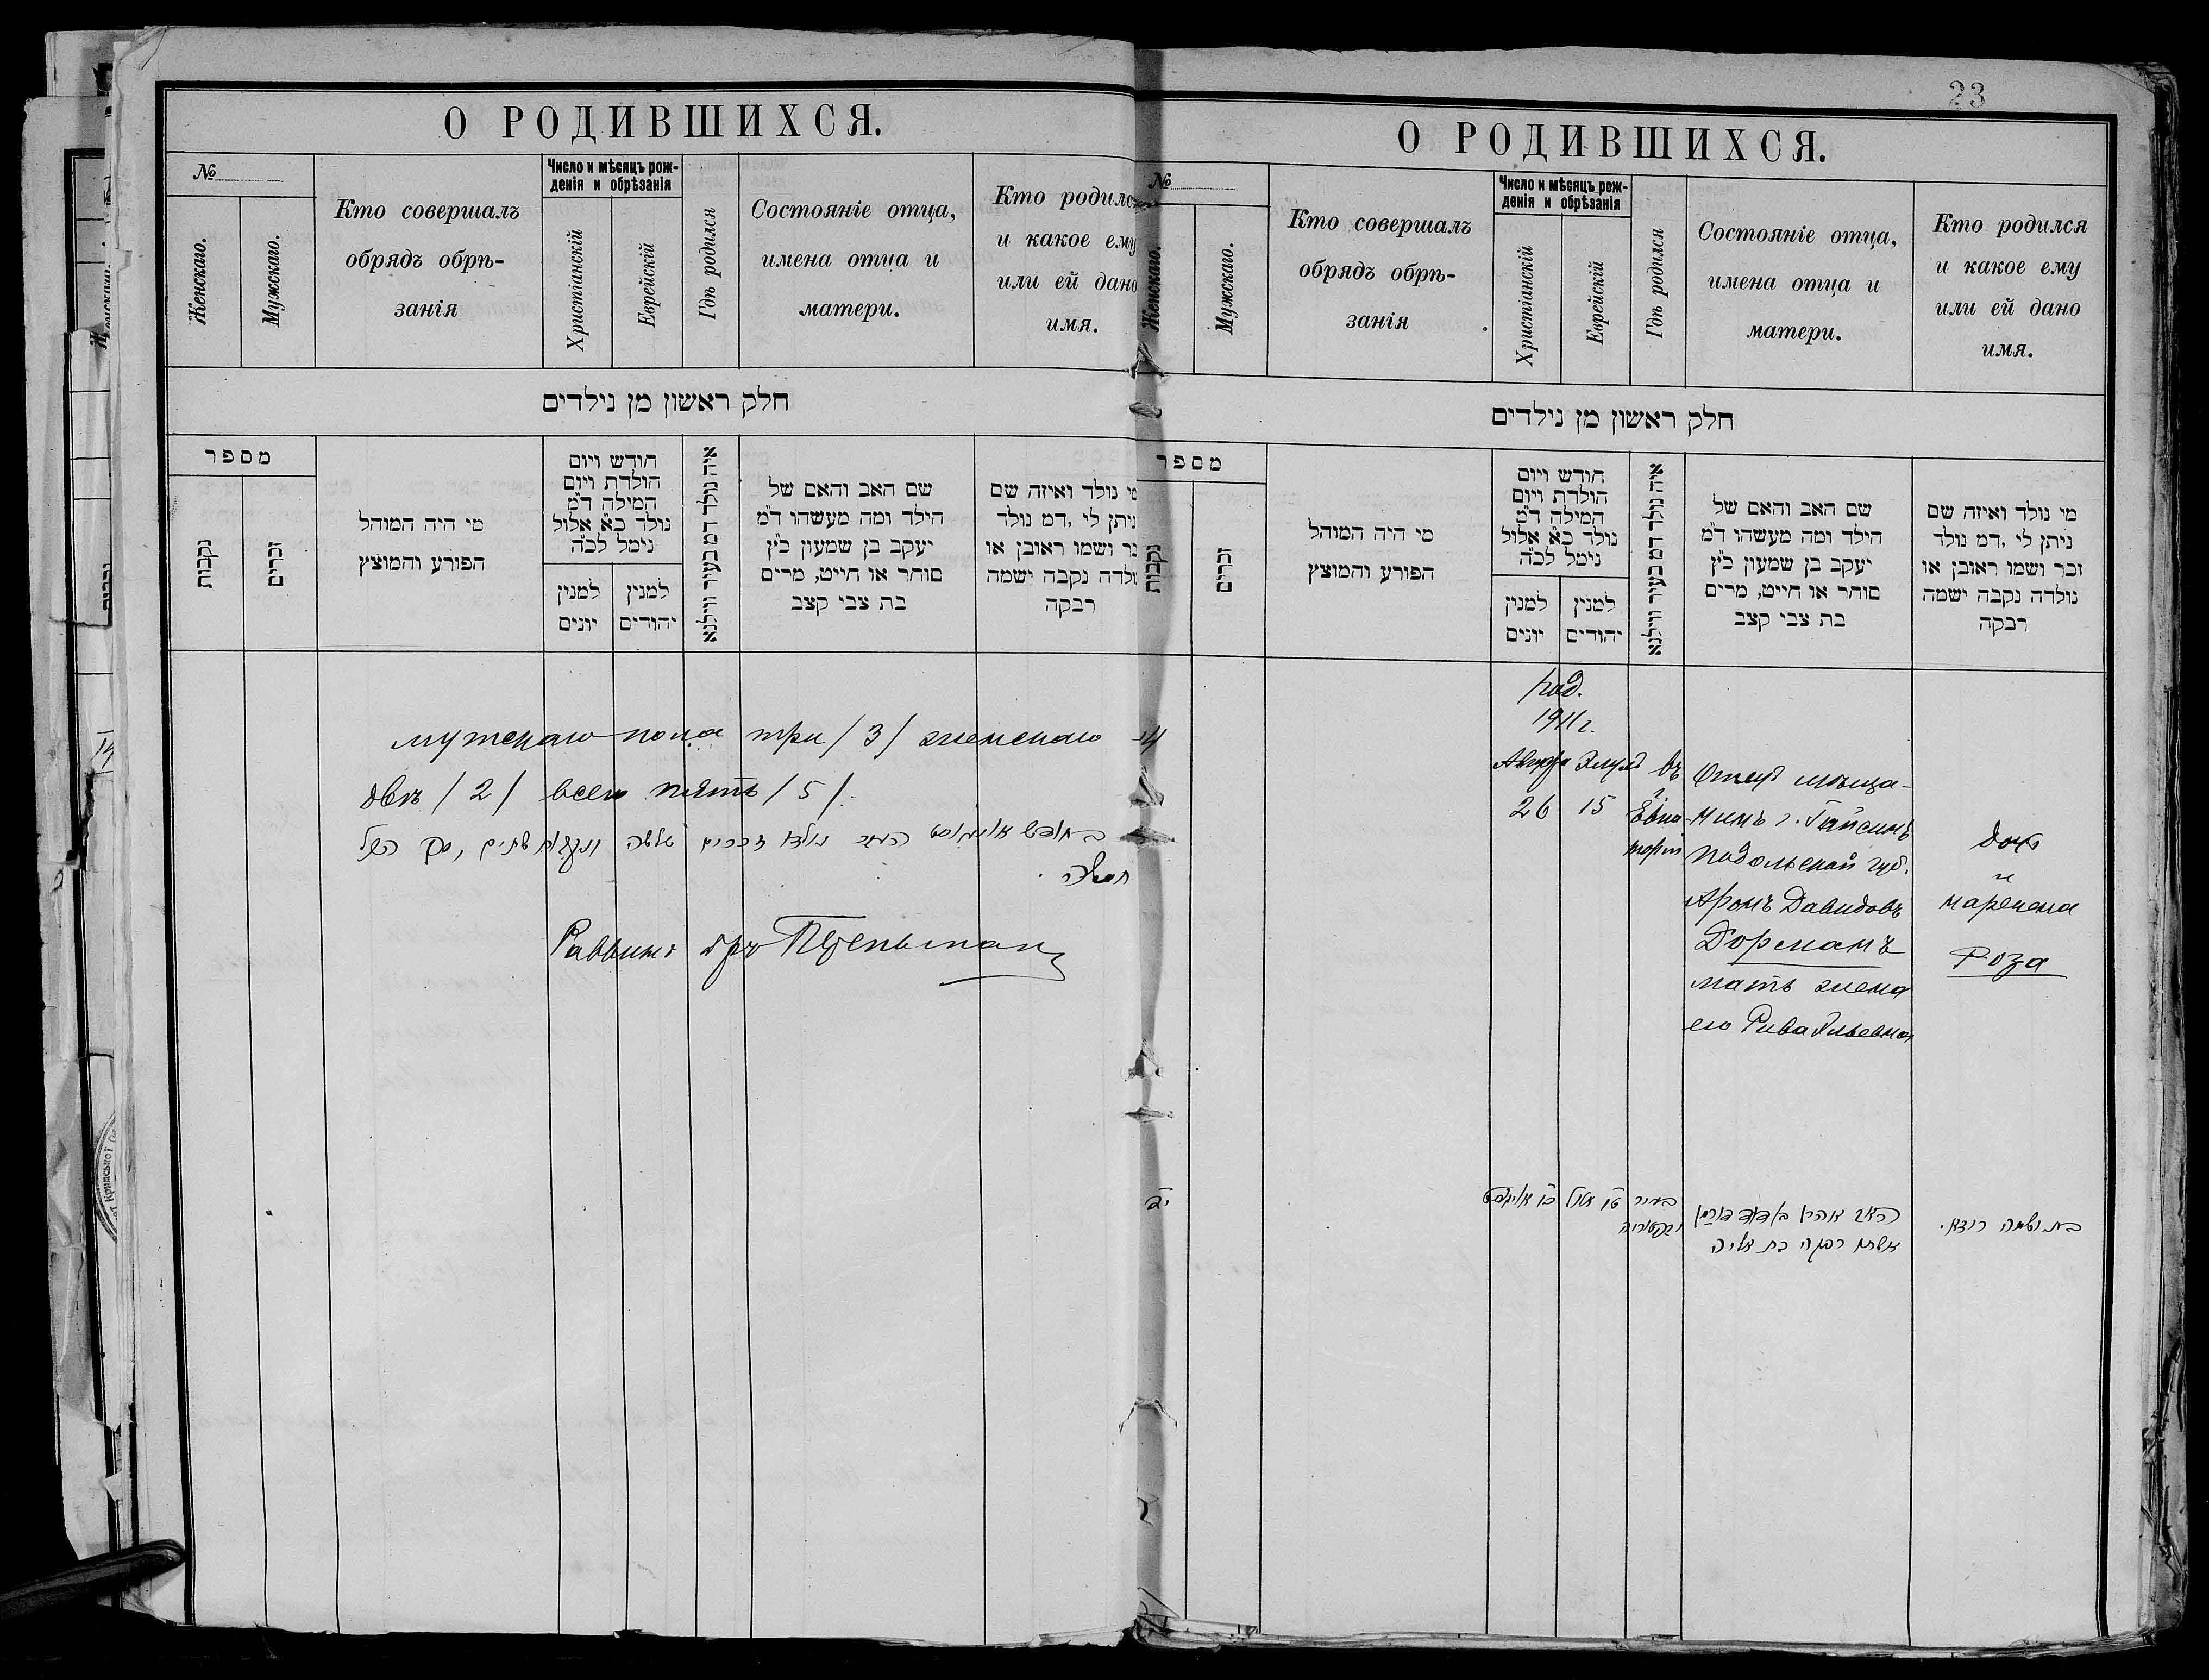 О РОДИВШИХСЯ.
№
Женскаго.
Мужскаго.
Кто совершалъ
обрядъ обрѣ-
занія
Число и мѣсяцъ рож-
денія и обрѣзанія
Христіанскій
Еврейскій
Гдѣ родился
Состояніе отца,
имена отца и
матери.
Кто родился
и какое ему
или ей дано
имя.
חלק ראשון מן נילדים
מספר
נקבות
זכרים
מי היה המוהל
הפורע והמוצץ
חודש ויום
הולדת ויום
המילה ד״מ
נולד כ״א אלול
נימל לכ״ה
למנין
יונים
למנין
יהודים
איה נולד דמ בעיר ווילנא
שם האב והאם של
הילד ומה מעשהו ד״מ
יעקב בן שמעון כ״ץ
סוחר או חייט, מרים
בת צבי קצב
מי נולד ואיזה שם
ניתן לי ,דמ נולד
זכר ושמו ראובן או
נולדה נקבה ישמה
רבקה
мужскаго пола три /3/ женскаго
двѣ /2/ всего пять /5/.
בחודש אויגוסט העבר נולדו זכרים שלשה ונקבות שתים, סך הכל
חמשה.
Раввинъ
23
О РОДИВШИХСЯ.
№
Женскаго.
Мужскаго.
Кто совершалъ
обрядъ обрѣ-
занія
Число и мѣсяцъ рож-
денія и обрѣзанія
Христіанскій
Еврейскій
Гдѣ родился
Состояніе отца,
имена отца и
матери.
Кто родился
и какое ему
или ей дано
имя.
חלק ראשון מן נילדים
מספר
נקבות
זכרים
מי היה המוהל
הפורע והמוצץ
חודש ויום
הולדת ויום
המילה ד״מ
נולד כ״א אלול
נימל לכ״ה
למנין
יונים
למנין
יהודים
איה נולד דמ בעיר ווילנא
שם האב והאם של
הילד ומה מעשהו ד״מ
יעקב בן שמעון כ״ץ
סוחר או חייט, מרים
בת צבי קצב
מי נולד ואיזה שם
ניתן לי ,דמ נולד
זכר ושמו ראובן או
נולדה נקבה ישמה
רבקה
14
род.
1911 г.
Августа
26
Элулъ
15
въ
г.
Евпа-
торіи
Отецъ мѣща-
нинъ г. Гайсинъ
Подольской губ.
Аронъ Давидовъ
Дорманъ
мать жена
его Рива Ильевна
дочь
и
наречена
Роза
י״ד
כ״ו אויגוסט
ט״ו אלול
בעיר
האב אהרן בן דוד דורמן
אשתו רבקה בת אליה
בת ושמה רוזא.